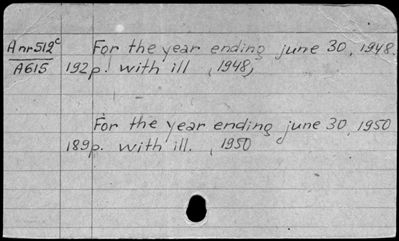 Anr512c For the year ending june 30, 1948.
A615 192p. with ill , 1948,
For the year ending june 30, 1950
189p. with ill. , 1950